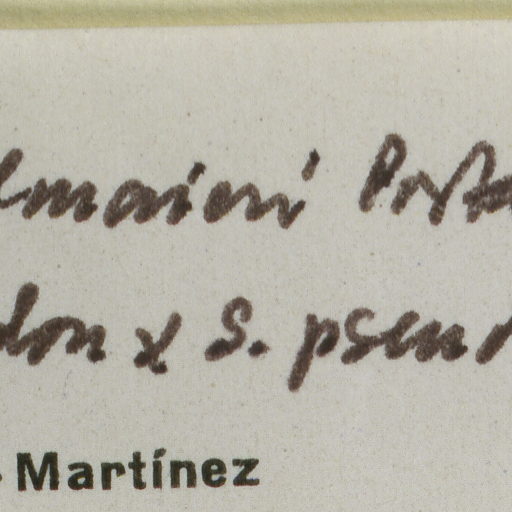 lmaieri Porta
don x S. pseu
Martínez